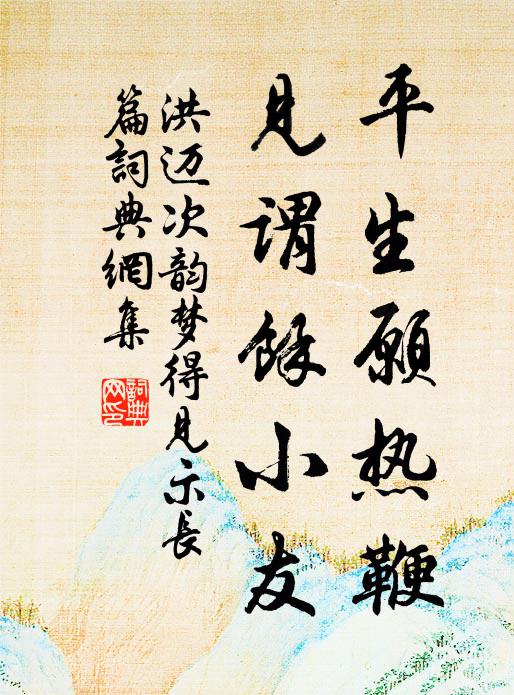 平生愿热鞭
见谓馀小友
洪迈次韵梦得见示长
篇词典網集
詞典網印